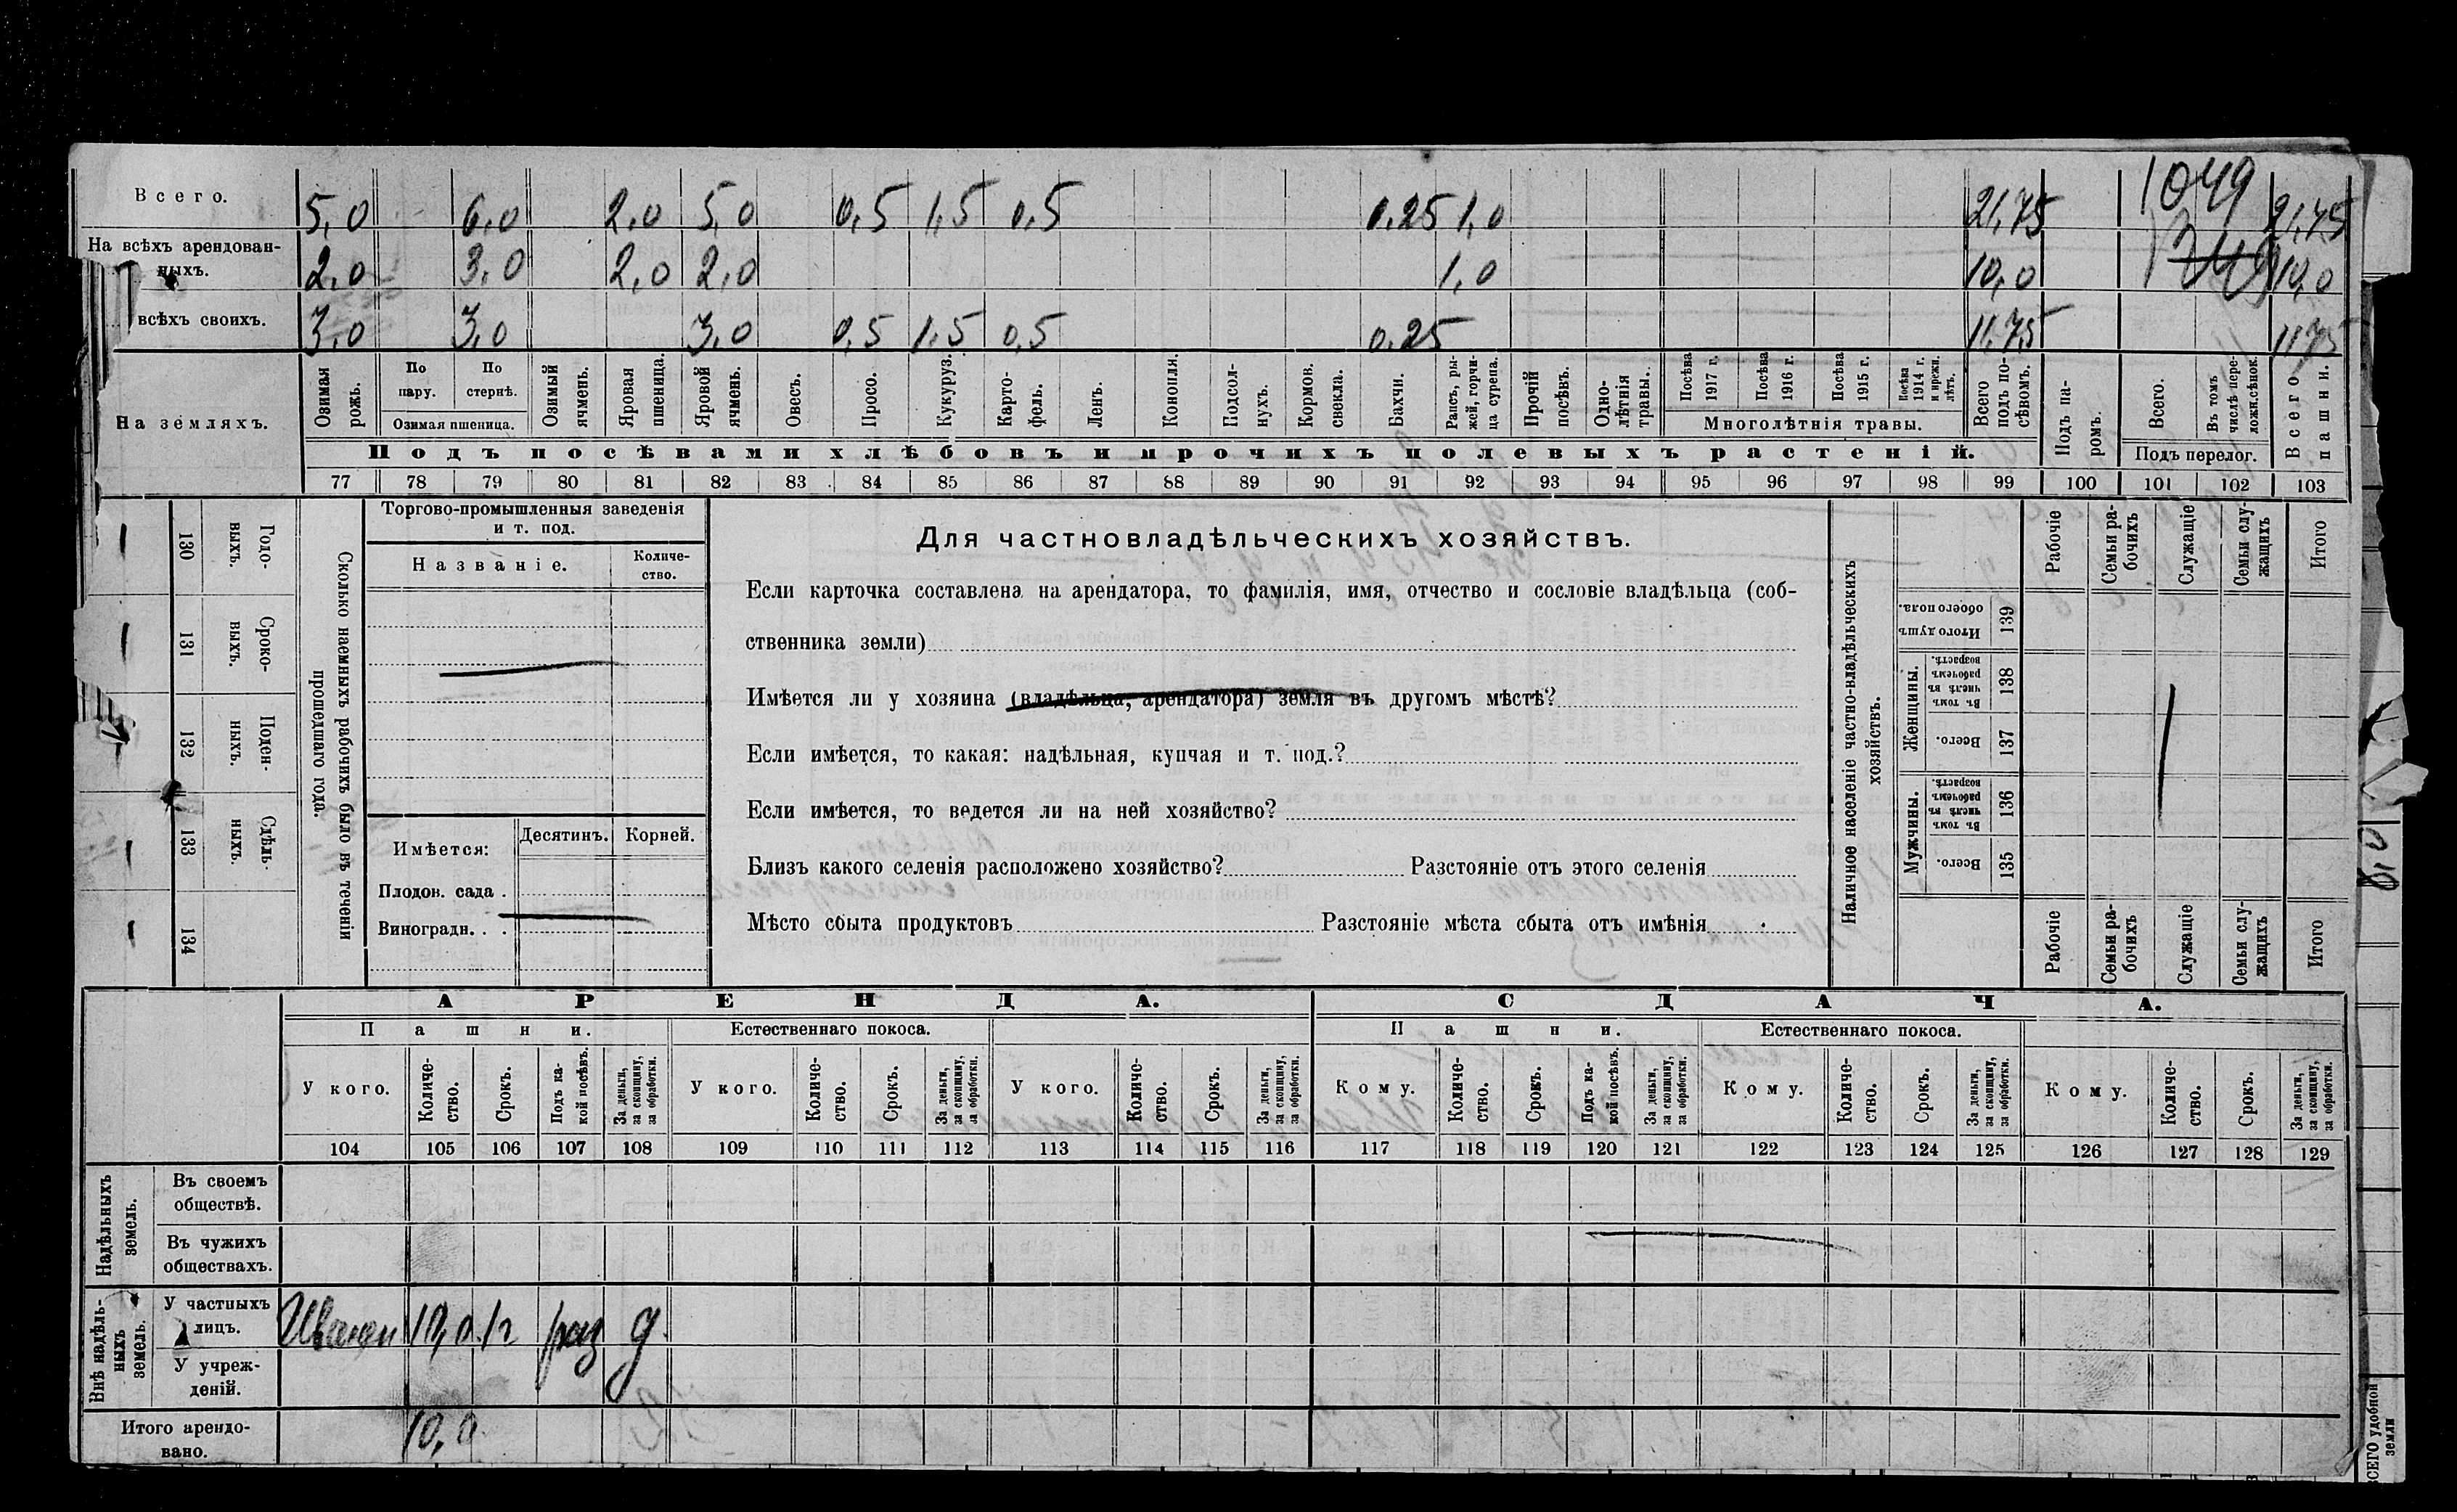 1049
Всего. 5,0 6,0 2,0 5,0 0,5 1,5 0,5 0.25 1,0 21,75 21,75
На всѣхъ арендован-
ныхъ. 2,0 3,0 2,0 2,0 1,0 10,0 10,0
всѣхъ своихъ. 3,0 3,0 3,0 0,5 1.5 0,5 0.25 11,75 11,75
На земляхъ.
Озимая рожь.
По пару.
По стернѣ.
Озимая пшеница.
Озимый ячмень.
Яровая пшеница.
Яровой ячмень.
Овесъ.
Просо.
Кукуруз.
Карто-
фель.
Ленъ.
Конопля.
Подсол-
нухъ.
Кормов. свекла.
Бахчи.
Рапсъ, ры-
жей, горчи-
ца сурепа.
Прочій посѣвъ.
Одно-
лѣтнія травы.
Посѣва 1917 г.
Посѣва 1916 г.
Посѣва 1915 г.
Посѣва 1914 г. и прежн. лѣтъ.
Многолѣтнія травы.
Всего подъ по-
сѣвомъ.
Подъ па-
ромъ.
Всего.
Въ томъ числѣ пере-
ложн.сѣнок.
Подъ перелог.
Всего пашни.
Подъ посѣвами хлѣбовъ и прочихъ полевыхъ растеній.
77 78 79 80 81 82 83 84 85 86 87 88 89 90 91 92 93 94 95 96 97 98 99 100 101 102 103
Сколько наемныхъ рабочихъ было въ теченіи
прошедшаго года.
Годо-
выхъ.
130
Сроко-
выхъ.
131
Поден-
ныхъ.
132
Сдѣль-
ныхъ.
133
134
Торгово-промышленныя заведенія
и т. под.
Названіе.
Количе-
ство.
Имѣется: Десятинъ. Корней.
Плодов. сада .
Виноградн. . .
Для частновладѣльческихъ хозяйствъ.
Если карточка составлена на арендатора, то фамилія, имя, отчество и сословіе владѣльца (соб-
ственника земли)
Имѣется ли у хозяина (владѣльца, арендатора) земля въ другомъ мѣстѣ?
Если имѣется, то какая: надѣльная, купчая и т. под.?
Если имѣется, то ведется ли на ней хозяйство?
Близъ какого селенія расположено хозяйство? Разстояніе отъ этого селенія
Мѣсто сбыта продуктовъ Разстояніе мѣста сбыта отъ имѣнія
Наличное населеніе частно-владѣльческихъ
хозяйствъ.
Рабочіе
Семьи ра-
бочихъ
Служащіе
Семьи слу-
жащихъ
Итого
Итого душъ обоего пола.
139
Женщины.
Въ томъ числѣ въ рабочемъ возрастѣ.
138
Всего.
137
Мужчины.
Въ томъ числѣ въ рабочемъ возрастѣ.
136
Всего.
135
Рабочіе
Семьи ра-
бочихъ
Служащіе
Семьи слу-
жащихъ
Итого
АРЕНДА. СДАЧА.
Пашни. Естественнаго покоса. Пашни. Естественнаго покоса.
У кого.
Количе-
ство.
Срокъ.
Подъ ка-
кой посѣвъ.
За деньги,
за скопщину,
за обработки.
У кого.
Количе-
ство.
Срокъ.
За деньги,
за скопщину,
за обработки.
У кого.
Количе-
ство.
Срокъ.
За деньги,
за скопщину,
за обработки.
Кому.
Количе-
ство.
Срокъ.
Подъ ка-
кой посѣвъ.
За деньги,
за скопщину,
за обработки.
Кому.
Количе-
ство.
Срокъ.
За деньги,
за скопщину,
за обработки.
Кому.
Количе-
ство.
Срокъ.
За деньги,
за скопщину,
за обработки.
104 105 106 107 108 109 110 111 112 113 114 115 116 117 118 119 120 121 122 123 124 125 126 127 128 129
Надѣльныхъ земель.
Въ своемъ
обществѣ.
Въ чужихъ
обществахъ.
Внѣ надѣль-
ныхъ земель.
У частныхъ
лицъ. 10,0 1г раз д.
У учреж-
деній.
Итого арендо-
вано. 10,0
ВСЕГО удобной
земли